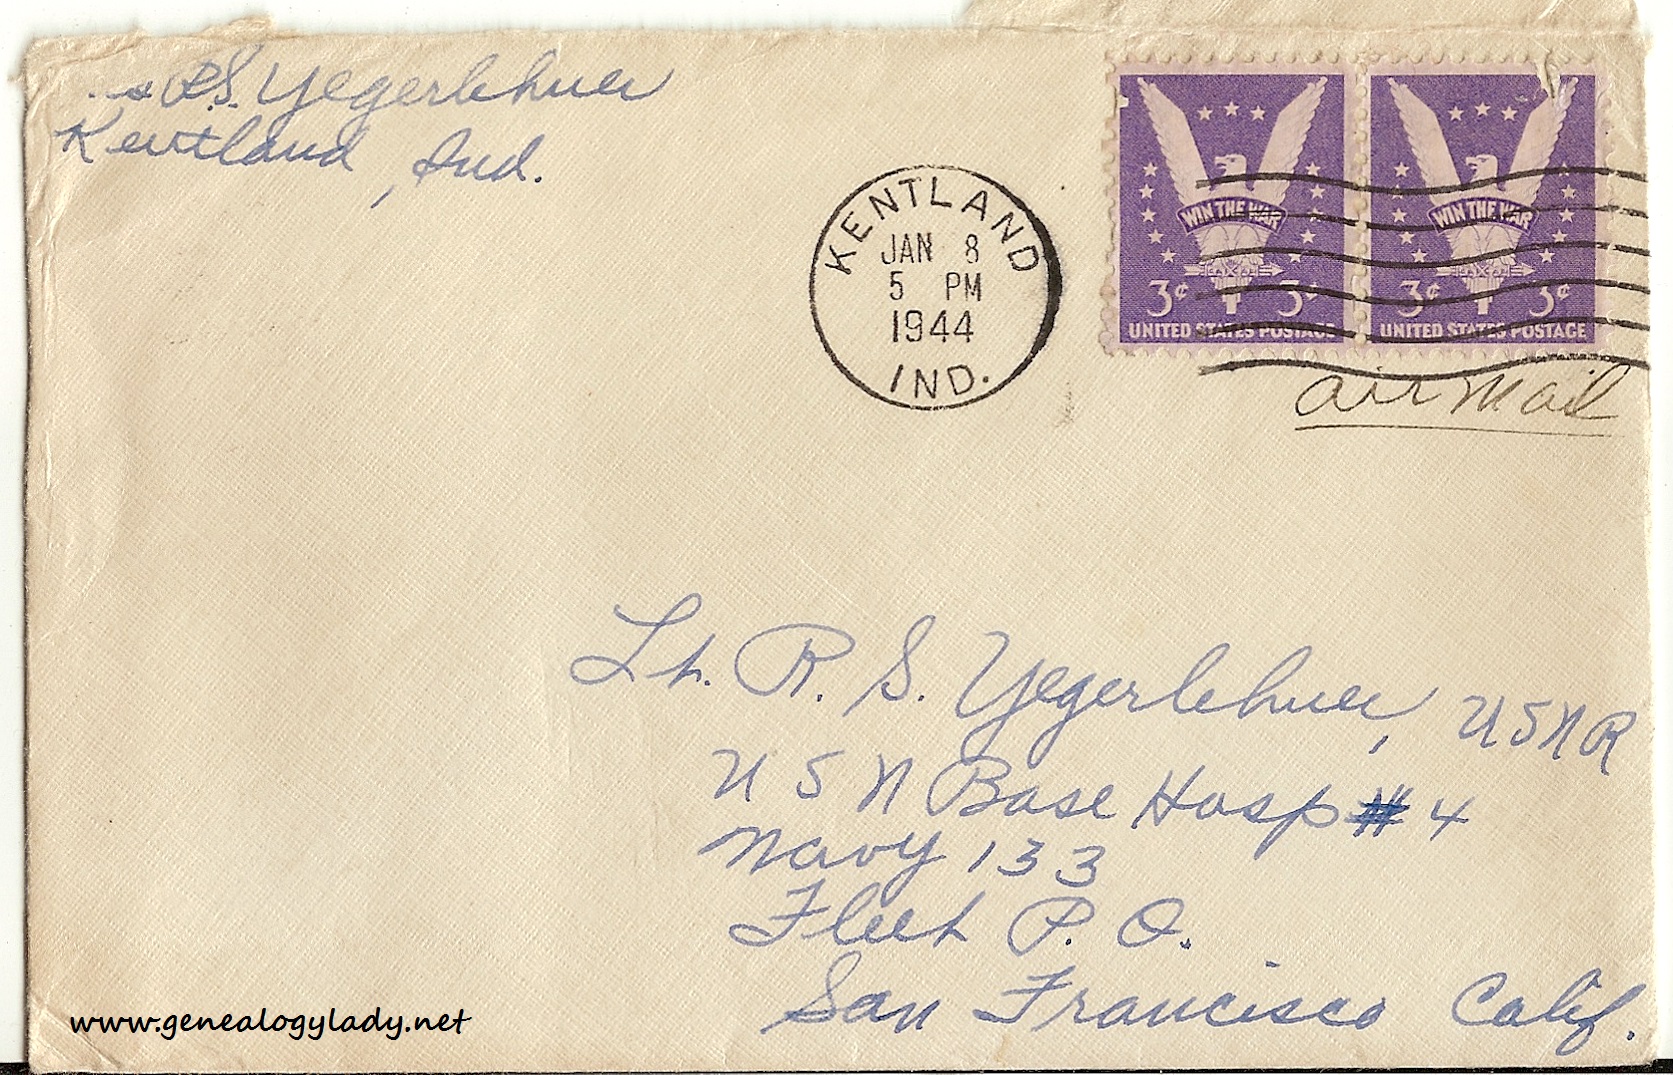 R.S. Yegerlehner
Kentland, Ind.
KENTLAND
JAN 8
5 PM
1944
IND.
WIN THE WAR
3¢ 3¢
UNITED STATES POSTAGE
WIN THE WAR
3¢ 3¢
UNITED STATES POSTAGE
air mail
Lt. R. S. Yegerlehner, USNR
USN Base Hosp # 4
Navy 133
Fleet P. O.
San Francisco Calif.
www.genealogylady.net